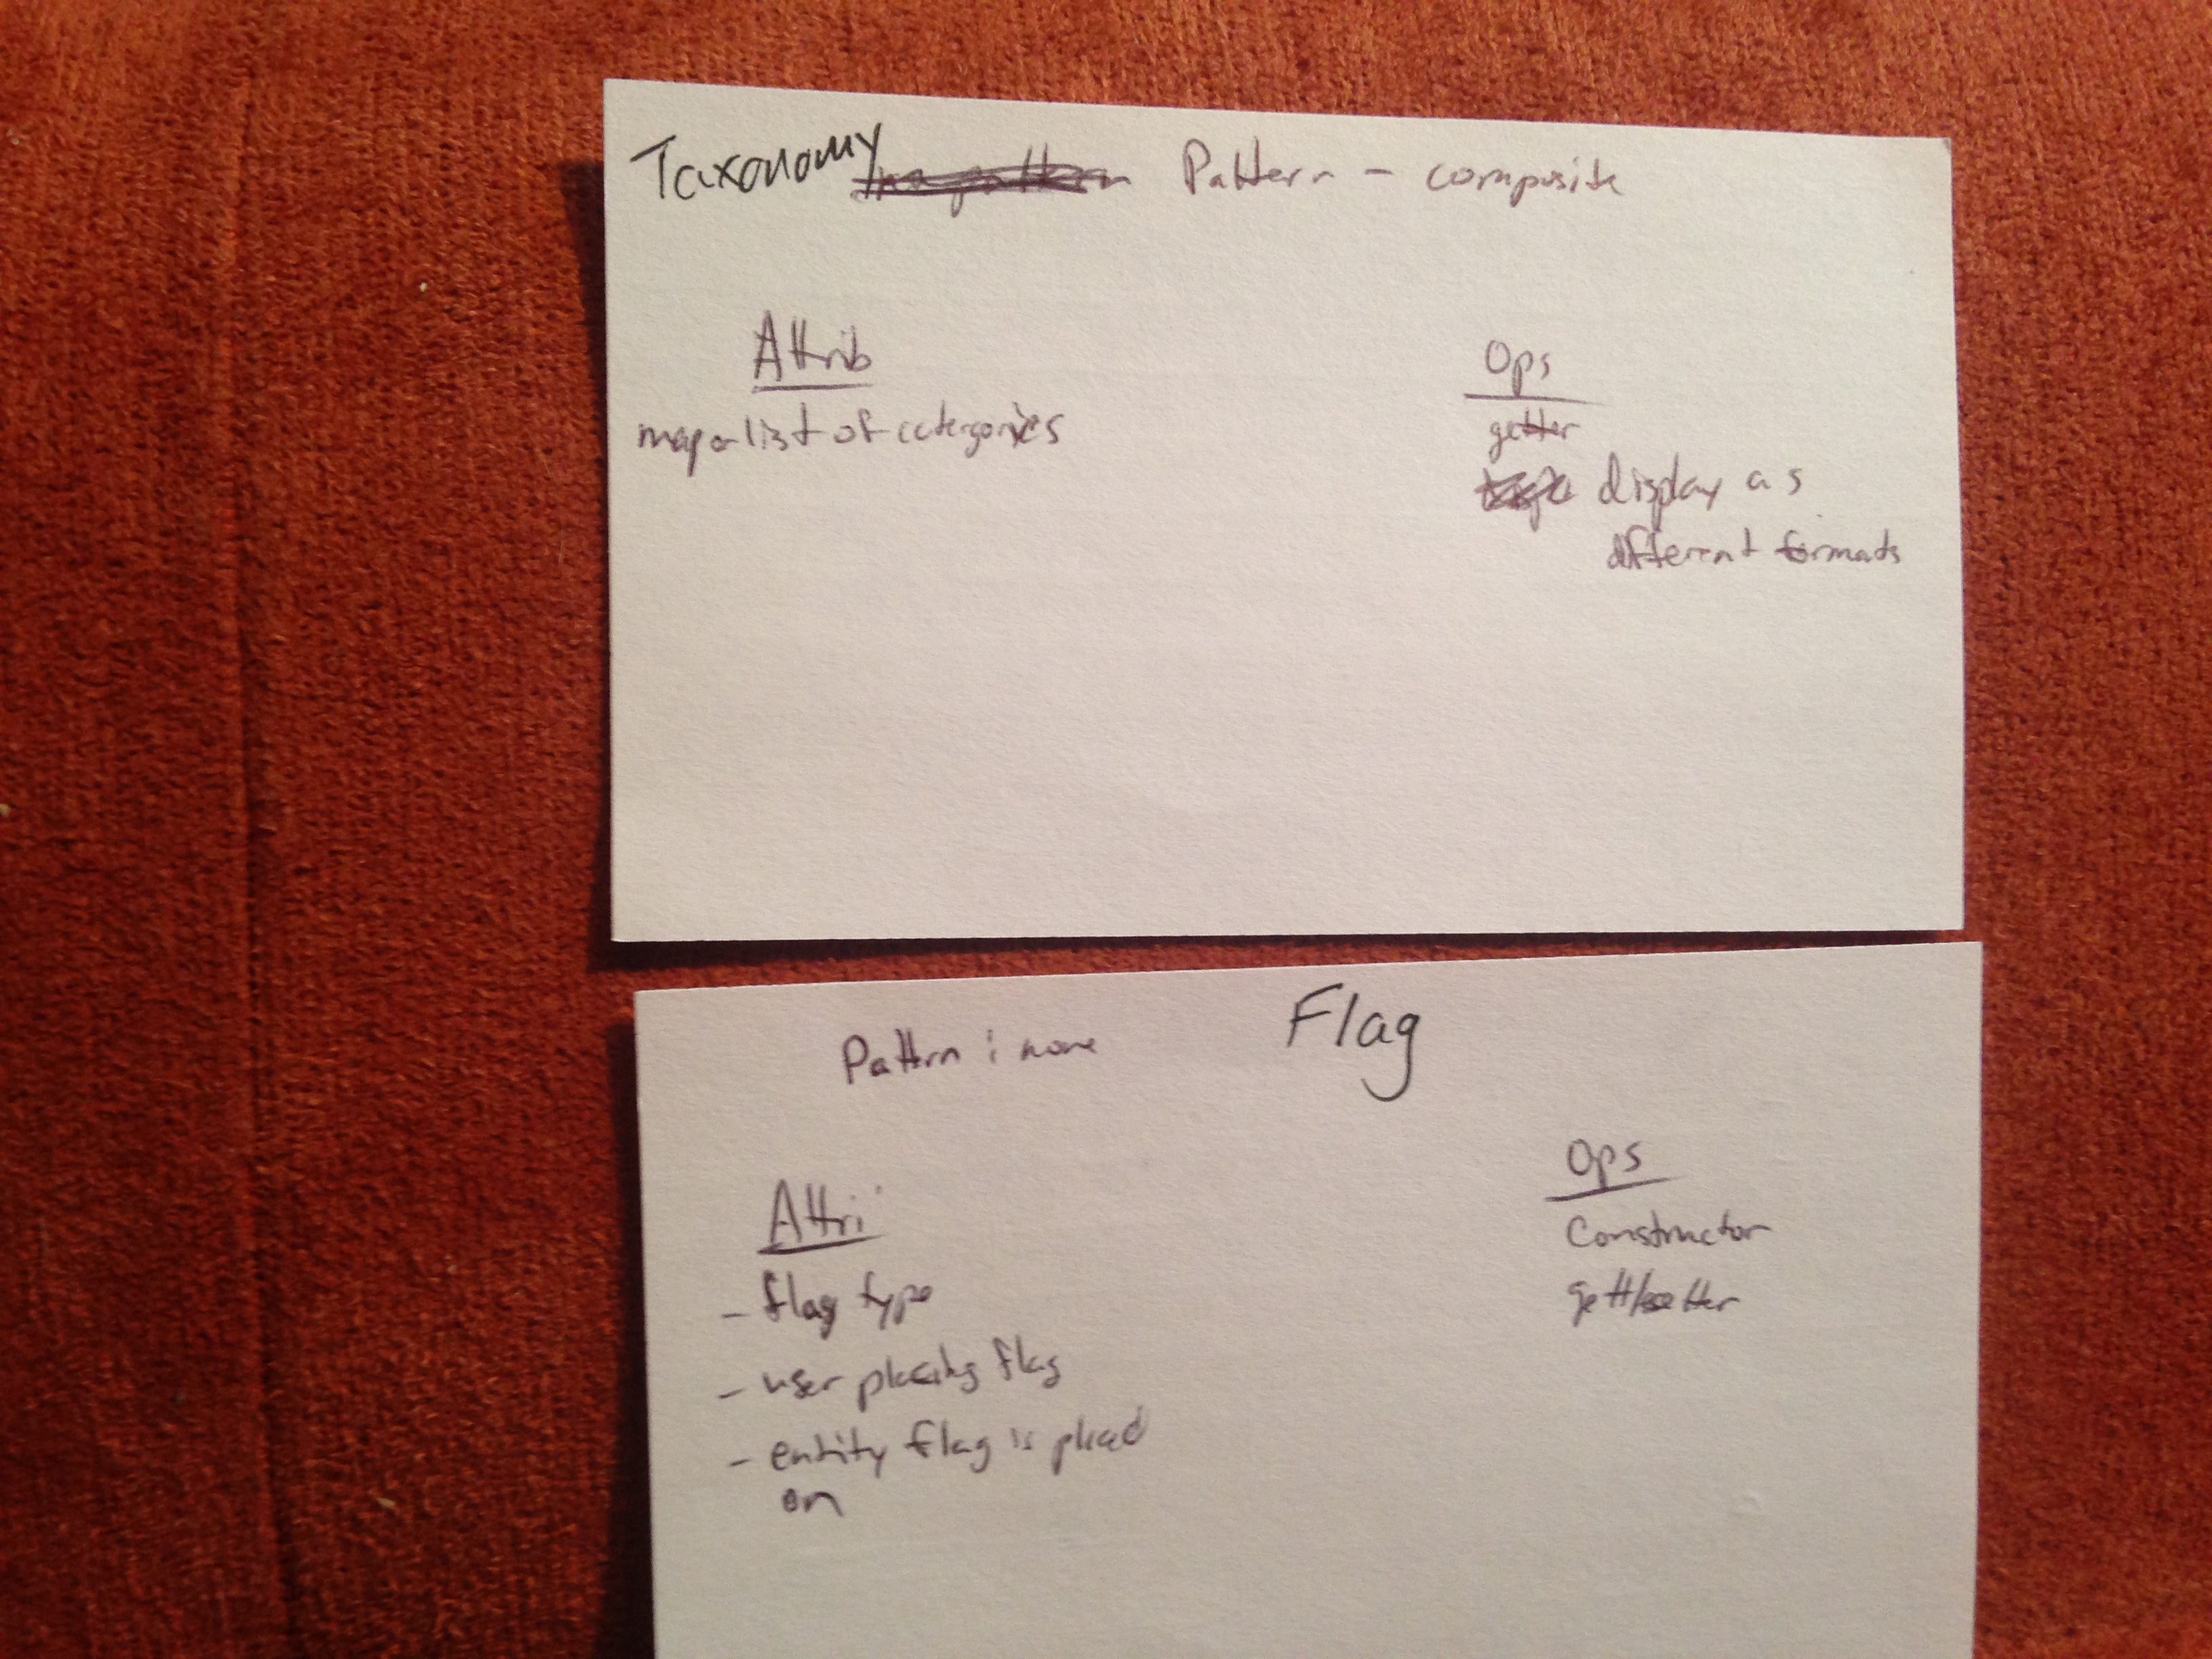 Taxonomy Pattern - composite
Attrib
map or list of catergories
Ops
getter
display as
different formats
Flag
Pattrn : none
Attri
- flag type
- user placing flag
- entity flag is placed
on
Ops
Constructor
gett/setter